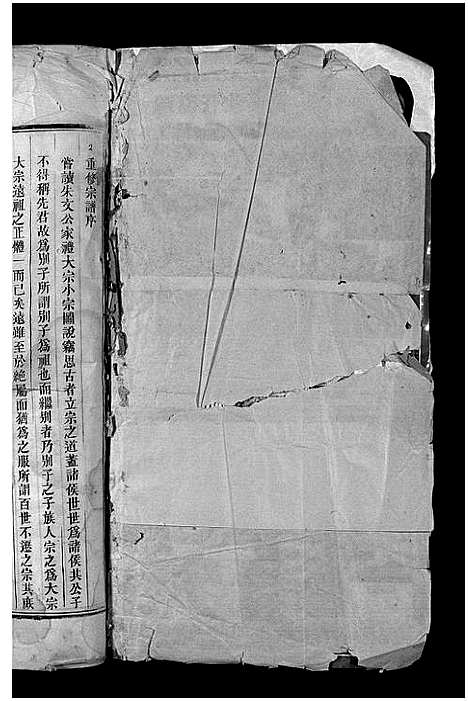 重修宗譜序
嘗讀朱文公家禮大宗小宗圖說竊思古者立宗之道蓋諸侯世世爲諸侯其公子
不得稱先君故爲別子所謂別子爲祖也而繼別者乃別子之子族人宗之爲大宗
大宗遠祖之正體一而已矣遠雖至於絶屬而猶爲之服所謂百世不遷之宗其族